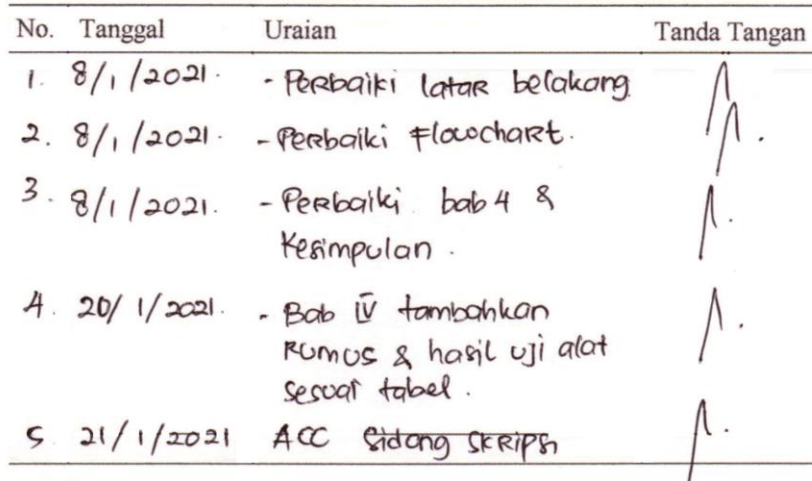 No. Tanggal Uraian Tanda Tangan
1. 8/1/2021. - Perbaiki latar belakang
2. 8/1/2021. - Perbaiki Flowchart.
3. 8/1/2021. - Perbaiki bab 4 &
Kesimpulan.
4. 20/1/2021. - Bab IV tambahkan
Rumus & hasil uji alat
sesuai tabel.
5 21/1/2021 ACC Sidang SKRIPSi